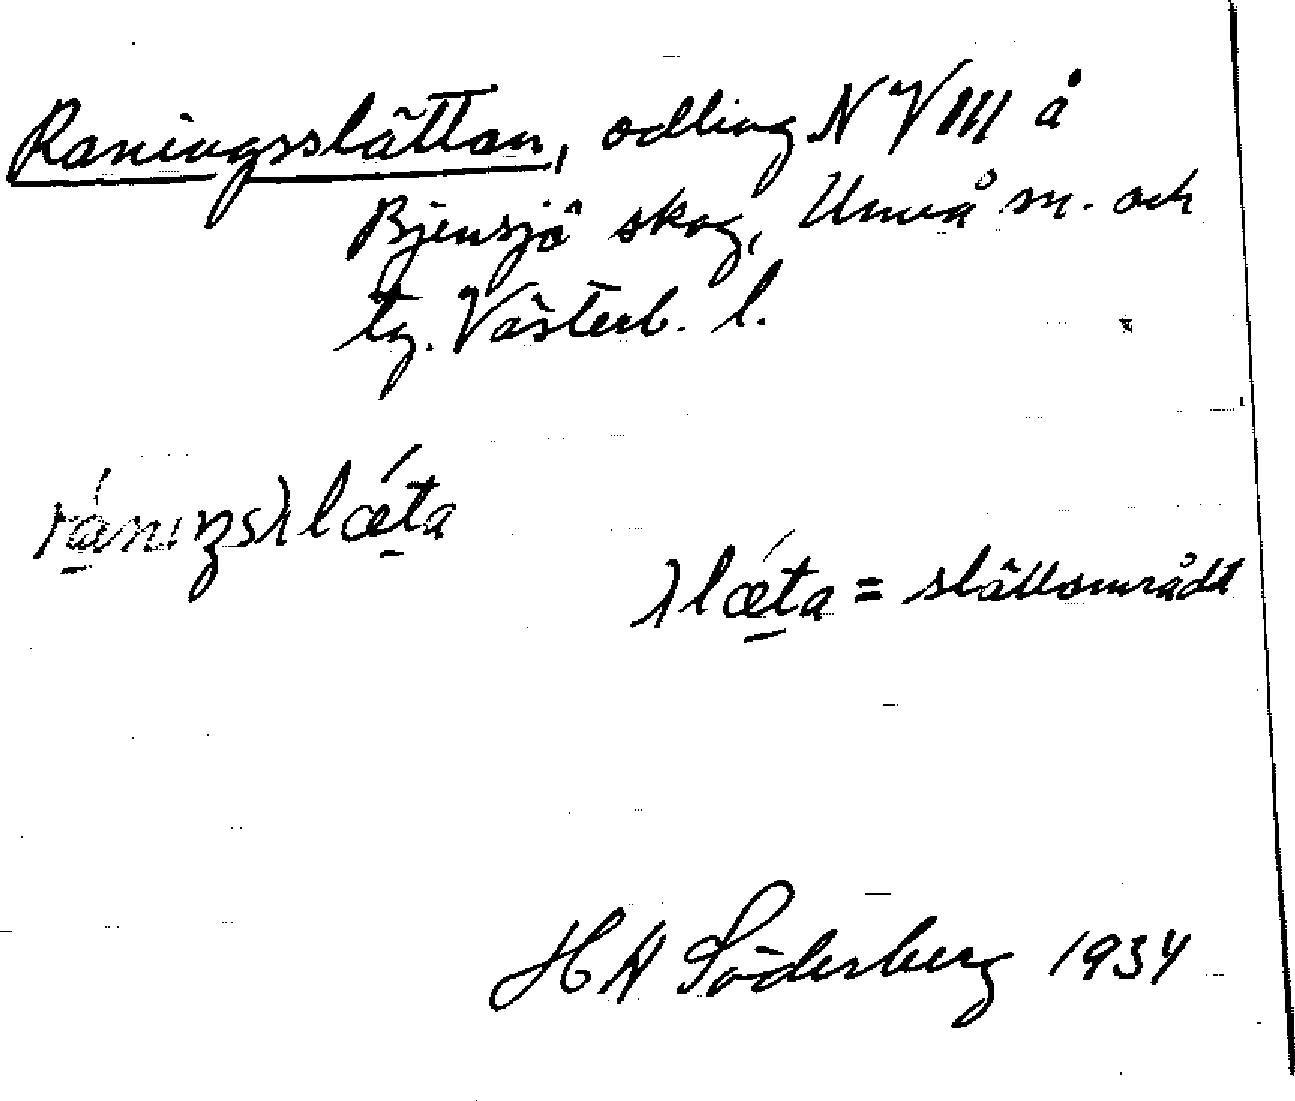 Raningsslättan, odling N VIII å
Bjensjö skog, Umeå sn. och
tg. Västerb. l.
ránıŋsλlǽta
λlǽta = slåttområdet
H A Söderberg 1934